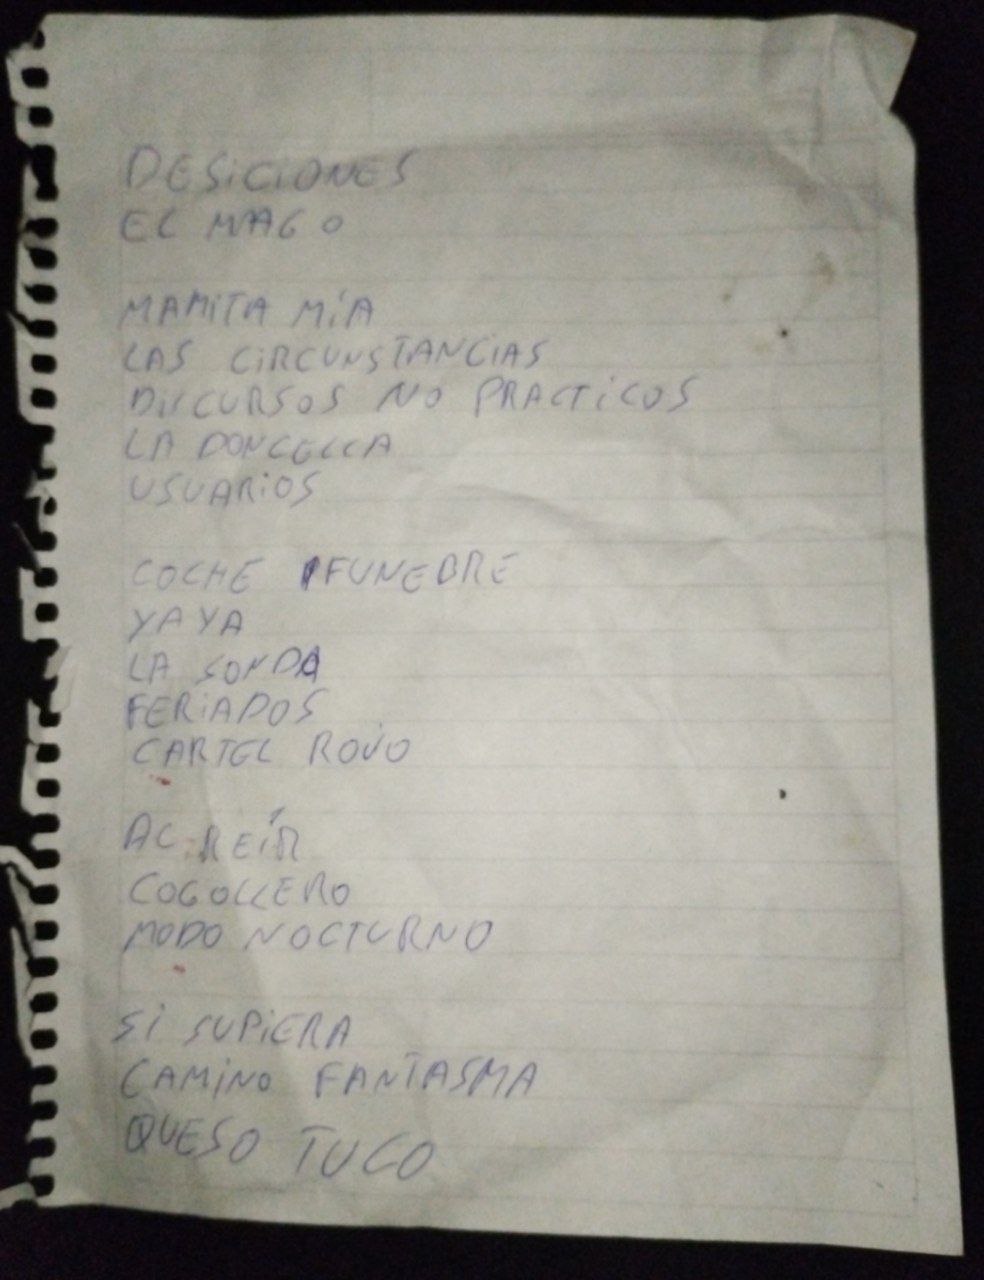 DESICIONES
EL MAGO
MAMITA MÍA
LAS CIRCUNSTANCIAS
DISCURSOS NO PRACTICOS
LA DONCELLA
USUARIOS
COCHE FUNEBRE
YAYA
LA SONDA
FERIADOS
CARTEL ROJO
AL REÍR
COGOLLERO
MODO NOCTURNO
SI SUPIERA
CAMINO FANTASMA
QUESO TUCO